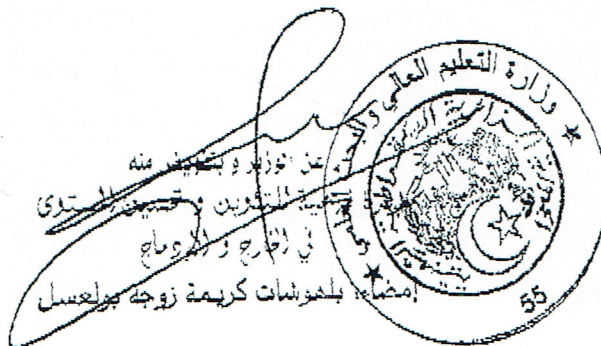 وزارة التعليم العالي والبحث العلمي
عن الوزير و بتفويض منه
التكوين و تحسين المستوى
في الخارج و الإدماج
إمضاء: بلهوشات كريمة زوجة بولعسل
55